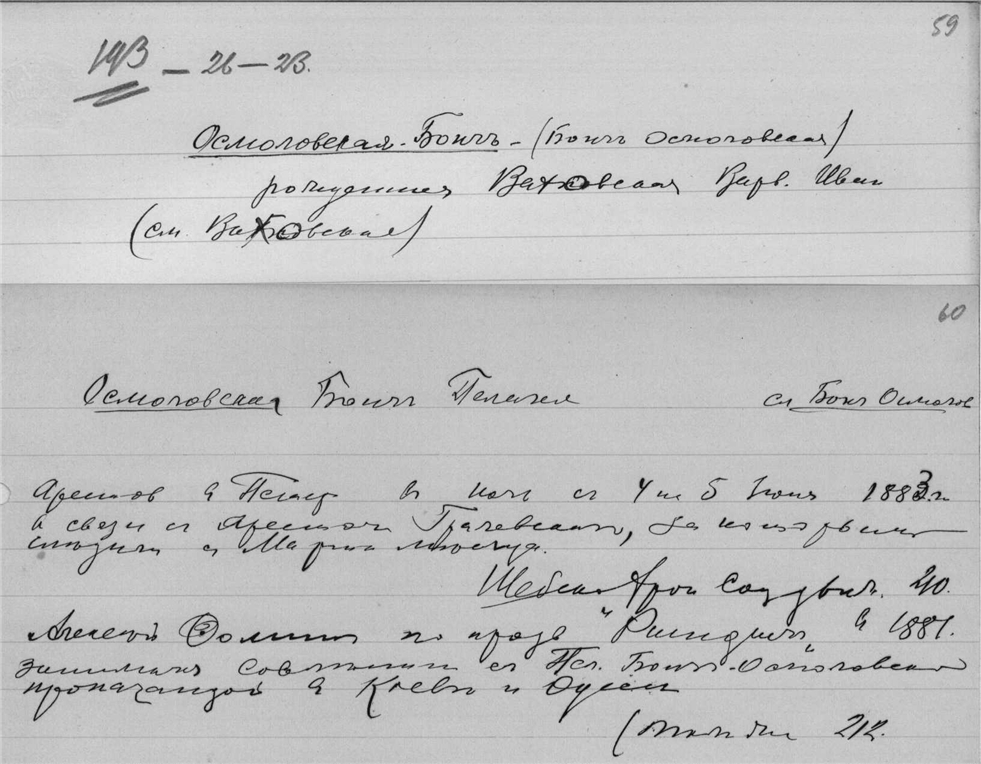 59
193 – 26 – 23.
Осмоловская-Бончъ – (Бончъ Осмоловская)
рожденная Ваховская Варв. Иван
(см. Ваховская)
60
Осмоловская Бончъ Пелагея
см Бонч Осмолов
Арестов в Петерб в ночь с 4 на 5 Июня 1883 г.
в связи с арестом Грачевского, за которым
следили с Марта месяца.
20.
Алексей по прозв " " в 1881.
занимался совместно с Пел. Бончъ-Осмоловской
пропагандой в Киеве и Одессе
212.